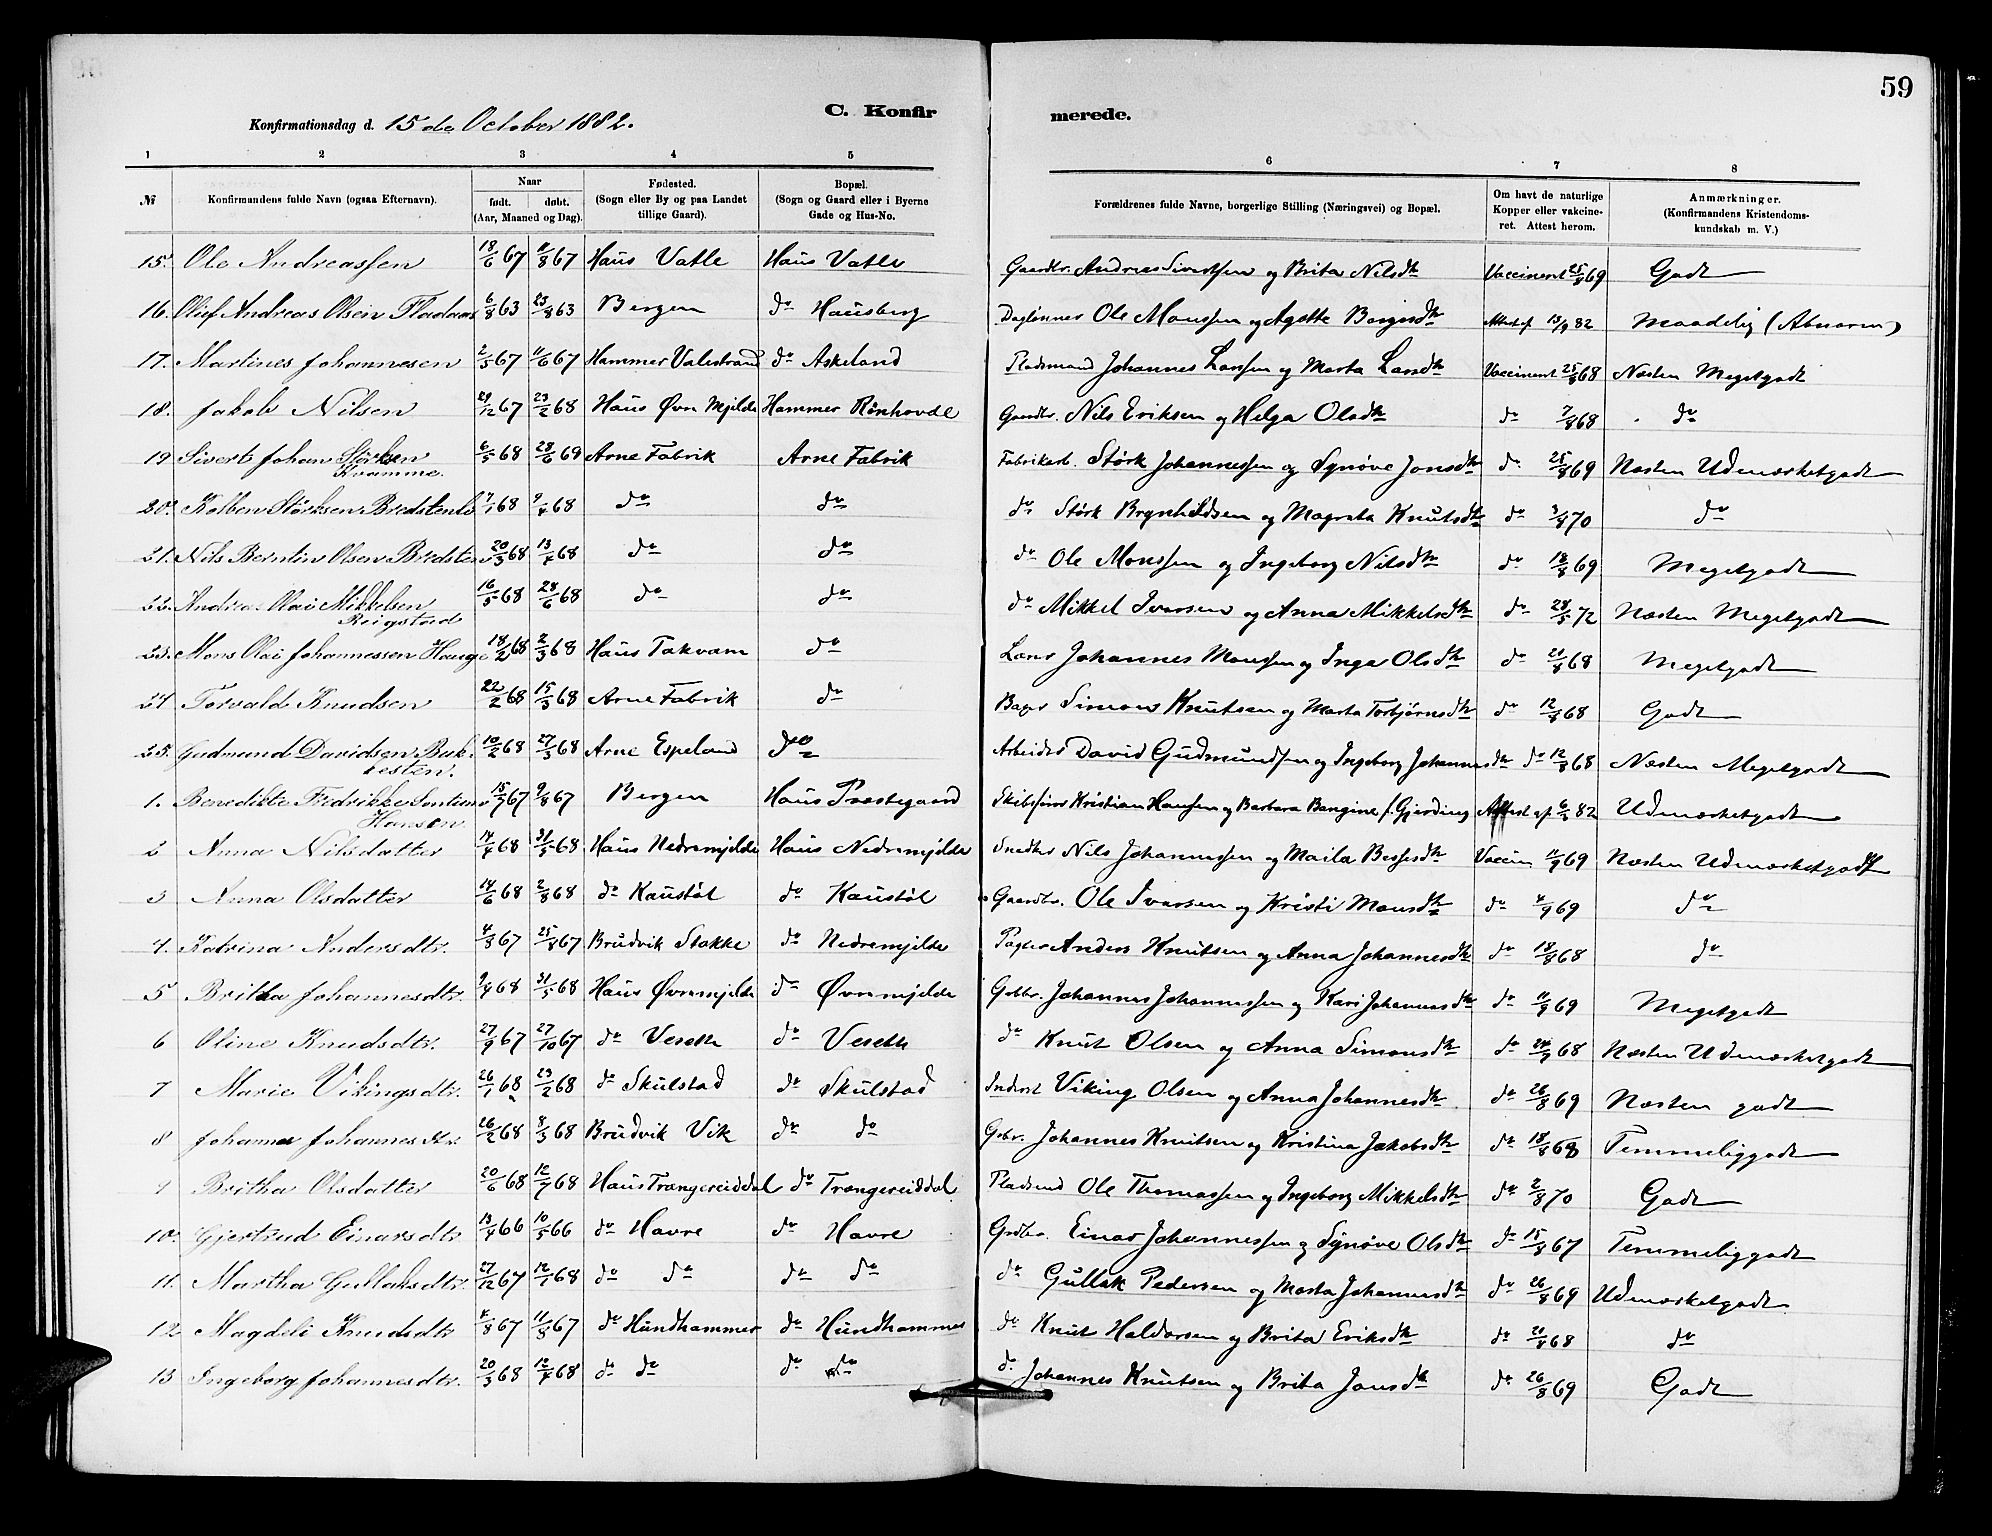 59
C. Konfir merede.
Konfirmationsdag d. 15de October 1882.
1 2 3 4 5 6 7 8
№ Konfirmandens fulde Navn (ogsaa Efternavn). Naar født. døbt. (Aar, Maaned og Dag). Fødested. (Sogn eller By og paa Landet tillige Gaard). Bopæl. (Sogn og Gaard eller i Byerne Gade og Hus-No. Forældrenes fulde Navne, borgerlige Stilling (Næringsvei) og Bopæl. Om havt de naturlige Kopper eller vakcineret. Attest herom. Anmærkninger. (Konfirmandens Kristendomskundskab m. V.)
15. Ole Andreassen 18/6 67 11/8 67 Haus Vatle Haus Vatle Gaardbr. Andreas Sivertsen og Brita Nilsdtr Vaccineret 25/8 69 Godt
16. Oluf Andreas Olsen 6/8 63 23/8 63 Bergen do Hausberg Daglønner Ole Monssen og Agathe Borgesdtr Attest af 13/9 82 Maadelig (Abnorm)
17. Martines Johannesen 2/5 67 11/6 67 Hammer Valestrand do Askeland Pladsmand Johannes Larssen og Marta Larsdtr Vaccineret 25/8 68 Næsten Megetgodt
18. Jakob Nilsen 29/12 67 23/2 68 Haus Øvre Mjelde Hammer Rønhovde Gaardbr. Nils Eriksen og Helga Olsdtr do 7/8 68 do
19 Sivert Johan Størksen Kvamme. 6/5 68 28/6 69 Arne Fabrik Arne Fabrik Fabrikarb. Størk Johannessen og Synøve Jonsdtr do 25/8 69 Næsten Udmærketgodt
20. Kolben Størksen 7/1 68 9/4 68 do do do Størk Brynhildsen og Magreta Knutsdtr do 3/8 70 do
21. Nils Berntin Olsen 20/3 68 13/4 68 do do do Ole Monssen og Ingeborg Nilsdtr do 18/8 69 Megetgodt
22. Andreas Olai Mikkelsen Reigstad 16/5 68 28/6 68 do do do Mikkel Ivarsen og Anna Mikkelsdtr do 28/5 72 Næsten Megetgodt
23. Mons Olai Johannessen Hauge 18/2 68 2/3 68 Haus Takvam do Lærer Johannes Monssen og Inga Olsdtr do 21/8 68 Megetgodt
24 Torvald Knudsen 22/2 68 15/3 68 Arne Fabrik do Bager Simon Knutsen og Marta Torbjørnsdtr do 12/8 68 Godt
25. Gudmund Davidsen 10/2 68 27/3 68 Arne Espeland do Arbeider David Gudmundsen og Ingeborg Johannesdtr do 12/8 68 Næsten Megetgodt
1. Benedikte Fredrikke Hansen 15/7 67 9/8 67 Bergen Haus Præstegaard Skibsfører Kristian Hanssen og Barbara Bangine f. Gjerding Attest af 6/3 82 Udmærketgodt
2 Anna Nilsdatter 14/4 68 31/5 68 Haus Nedremjelde Haus Nedremjelde Snedker Nils Johannessen og Maila Bessesdtr Vaccin 11/9 69 Næsten Udmærketgodt
3 Anna Olsdatter 14/6 68 2/8 68 do Kaustøl do Kaustøl Gaardbr. Ole Ivarsen og Kristi Monsdtr do 4/9 69 do
4. Katrina Andersdtr. 4/8 67 25/8 67 Brudvik Stokke do Nedremjelde Anders Knutsen og Anna Johannesdtr do 18/8 68 do
5 Britha Johannesdtr. 9/4 68 31/5 68 Haus Øvremjelde do Øvremjelde Gdbr. Johannes Johannessen og Kari Johannesdtr do 11/9 69 Megetgodt
6 Oline Knudsdtr. 27/9 67 27/10 67 do Veseth do Veseth do Knut Olsen og Anna Simonsdtr do 24/9 68 Næsten Udmærketgodt
7 Marie Vikingsdtr. 26/1 68 23/2 68 do Skulstad do Skulstad Inderst Viking Olsen og Anna Johannesdtr. do 26/8 69 Næsten godt
8 Johanna Johannesdtr. 26/2 68 8/3 68 Brudvik Vik do do Gbr. Johannes Knutsen og Kristina Jakobsdtr do 18/8 68 Temmeliggodt
9 Britha Olsdatter 20/6 68 12/7 68 Haus Trængereiddal do Trængereiddal Pladsmd Ole Thomassen og Ingeborg Mikkelsdtr do 2/8 70 Godt
10. Gjertrud Einarsdtr 13/4 66 10/5 66 do Havre do Havre Grdbr. Einar Johannessen og Synøve Olsdtr do 15/8 67 Temmeliggodt
11. Martha Gullaksdtr 27/12 67 12/1 68 do do do do do Gullak Pedersen og Marta Johannesdtr do 26/8 69 Udmærketgodt
12 Magdeli Knudsdtr 4/8 67 11/8 67 do Hundhammer do Hundhammer do Knut Haldorsen og Brita Eriksdtr do 21/8 68 do
13 Ingeborg Johannesdtr. 20/3 68 12/4 68 do do do do do Johannes Knutsen og Brita Jonsdtr do 26/8 69 Godt